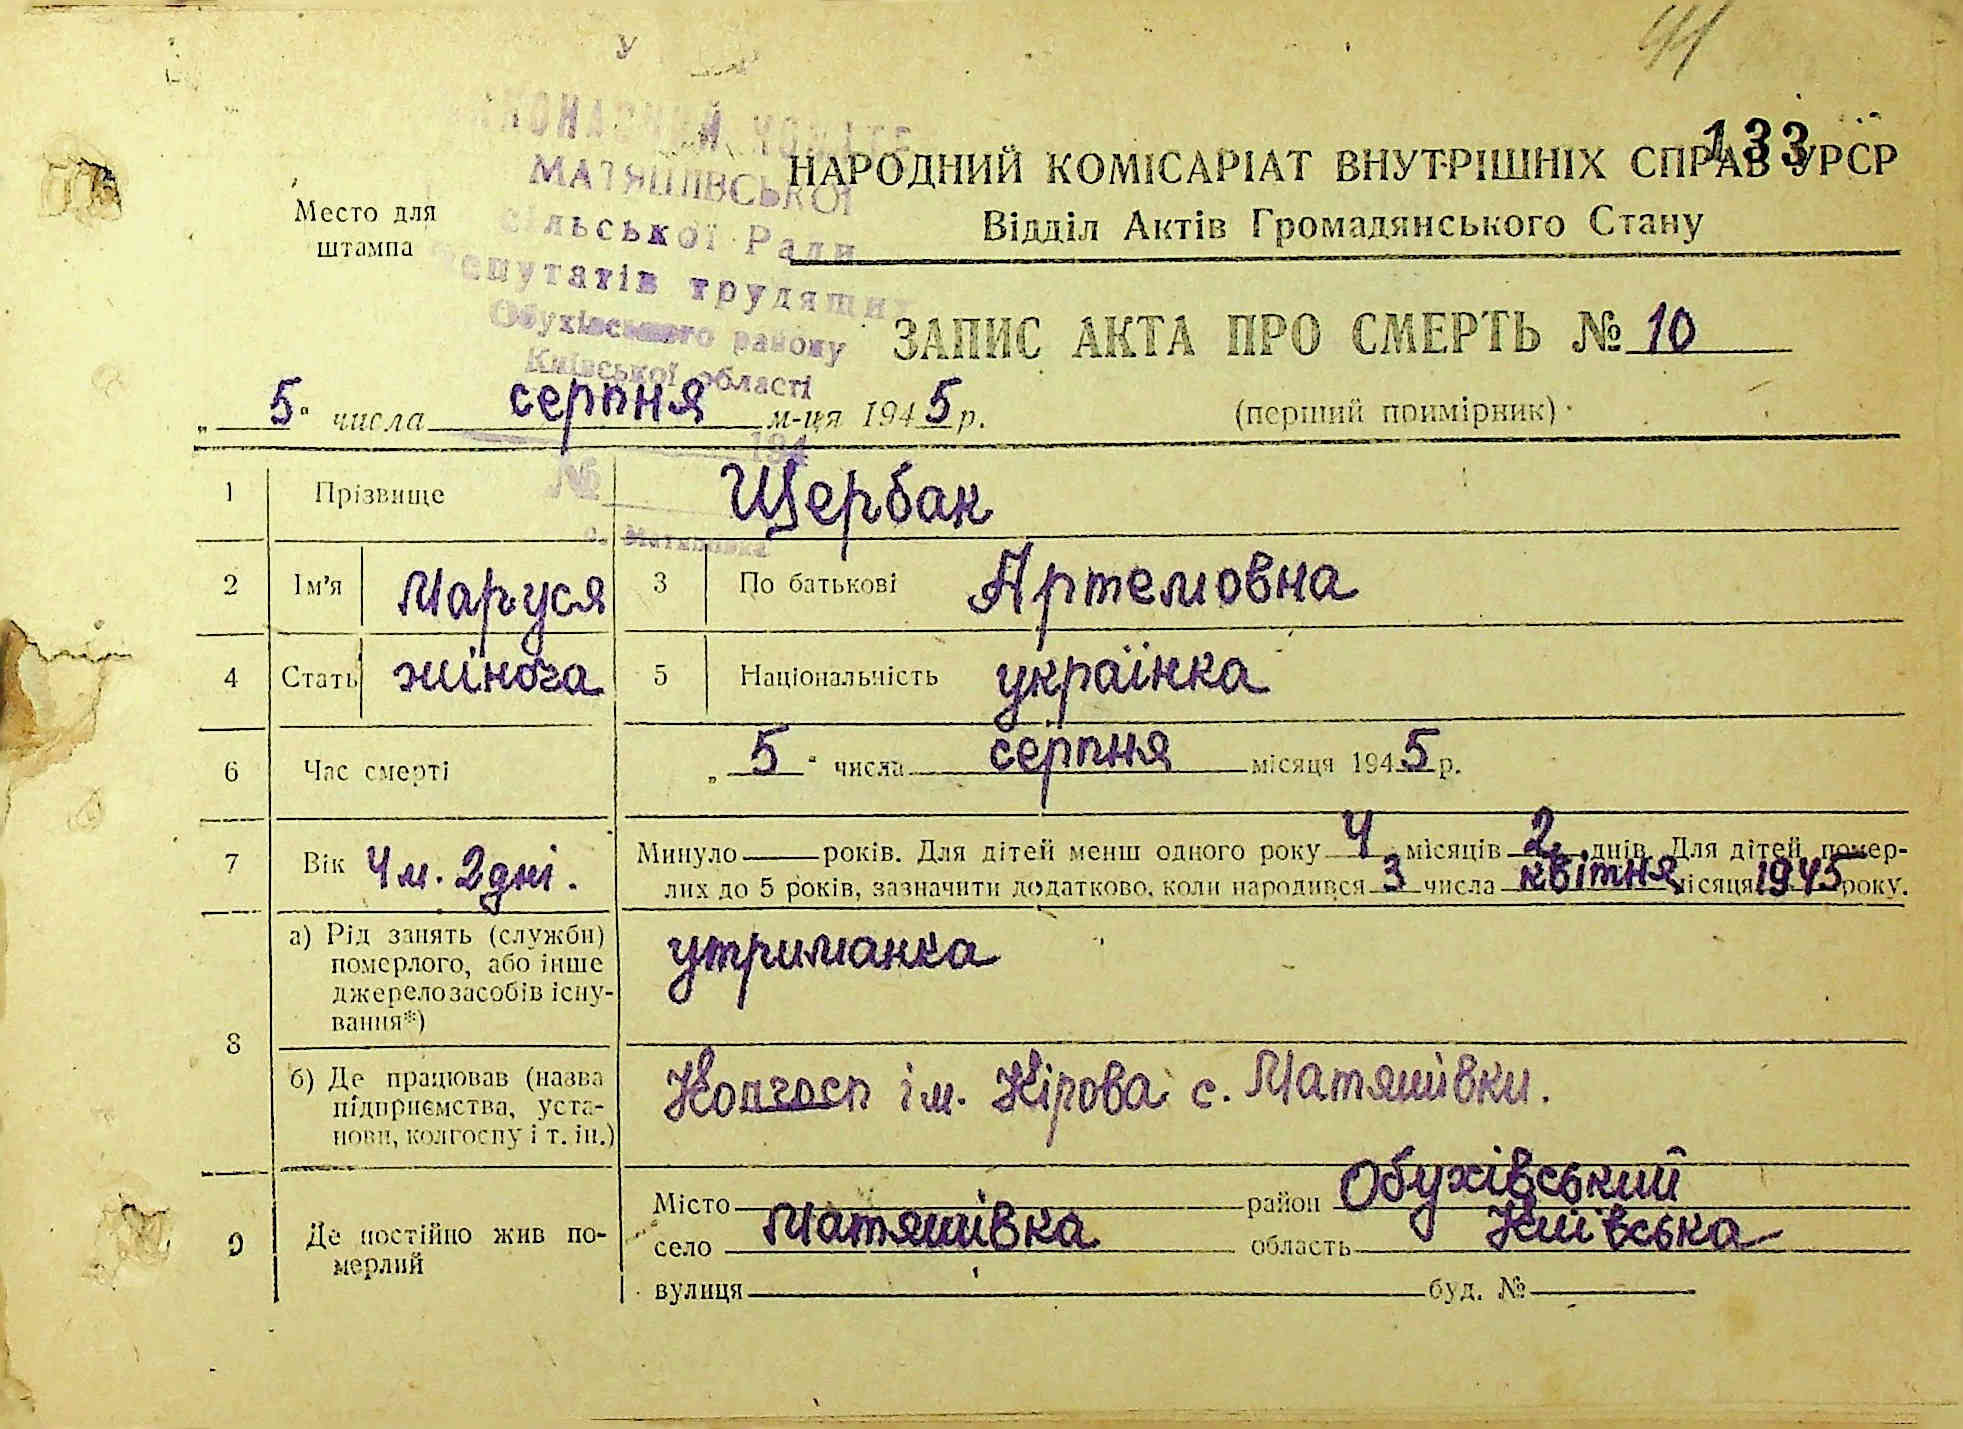 У
41
133
МАТЯШІВСЬКОЇ
сільської Ради
депутатів трудящих
Обухівського району
Київської області
194
№
с. Матяшівка
Место для
штампа
НАРОДНИЙ КОМІСАРІАТ ВНУТРІШНІХ СПРАВ УРСР
Відділ Актів Громадянського Стану
ЗАПИС АКТА ПРО СМЕРТЬ № 10
„5“ числа серпня м-ця 1945 р.
(перший примірник)
1 Прізвище Щербак
2 Ім'я Маруся 3 По батькові Артемовна
4 Стать жіноча 5 Національність українка
6 Час смерті „5“ числа серпня місяця 1945 р.
7 Вік 4 м. 2 дні. Минуло років. Для дітей менш одного року 4 місяців 2 днів. Для дітей помер-
лих до 5 років, зазначити додатково, коли народився 3 числа квітня місяця 1945 року.
8 а) Рід занять (служби)
померлого, або інше
джерело засобів існу-
вання*)
утриманка
б) Де працював (назва
підприємства, уста-
нови, колгоспу і т. ін.)
Колгосп ім. Кірова с. Матяшівки.
9 Де постійно жив по-
мерлий
Місто район Обухівський
село Матяшівка область Київська
вулиця буд. №